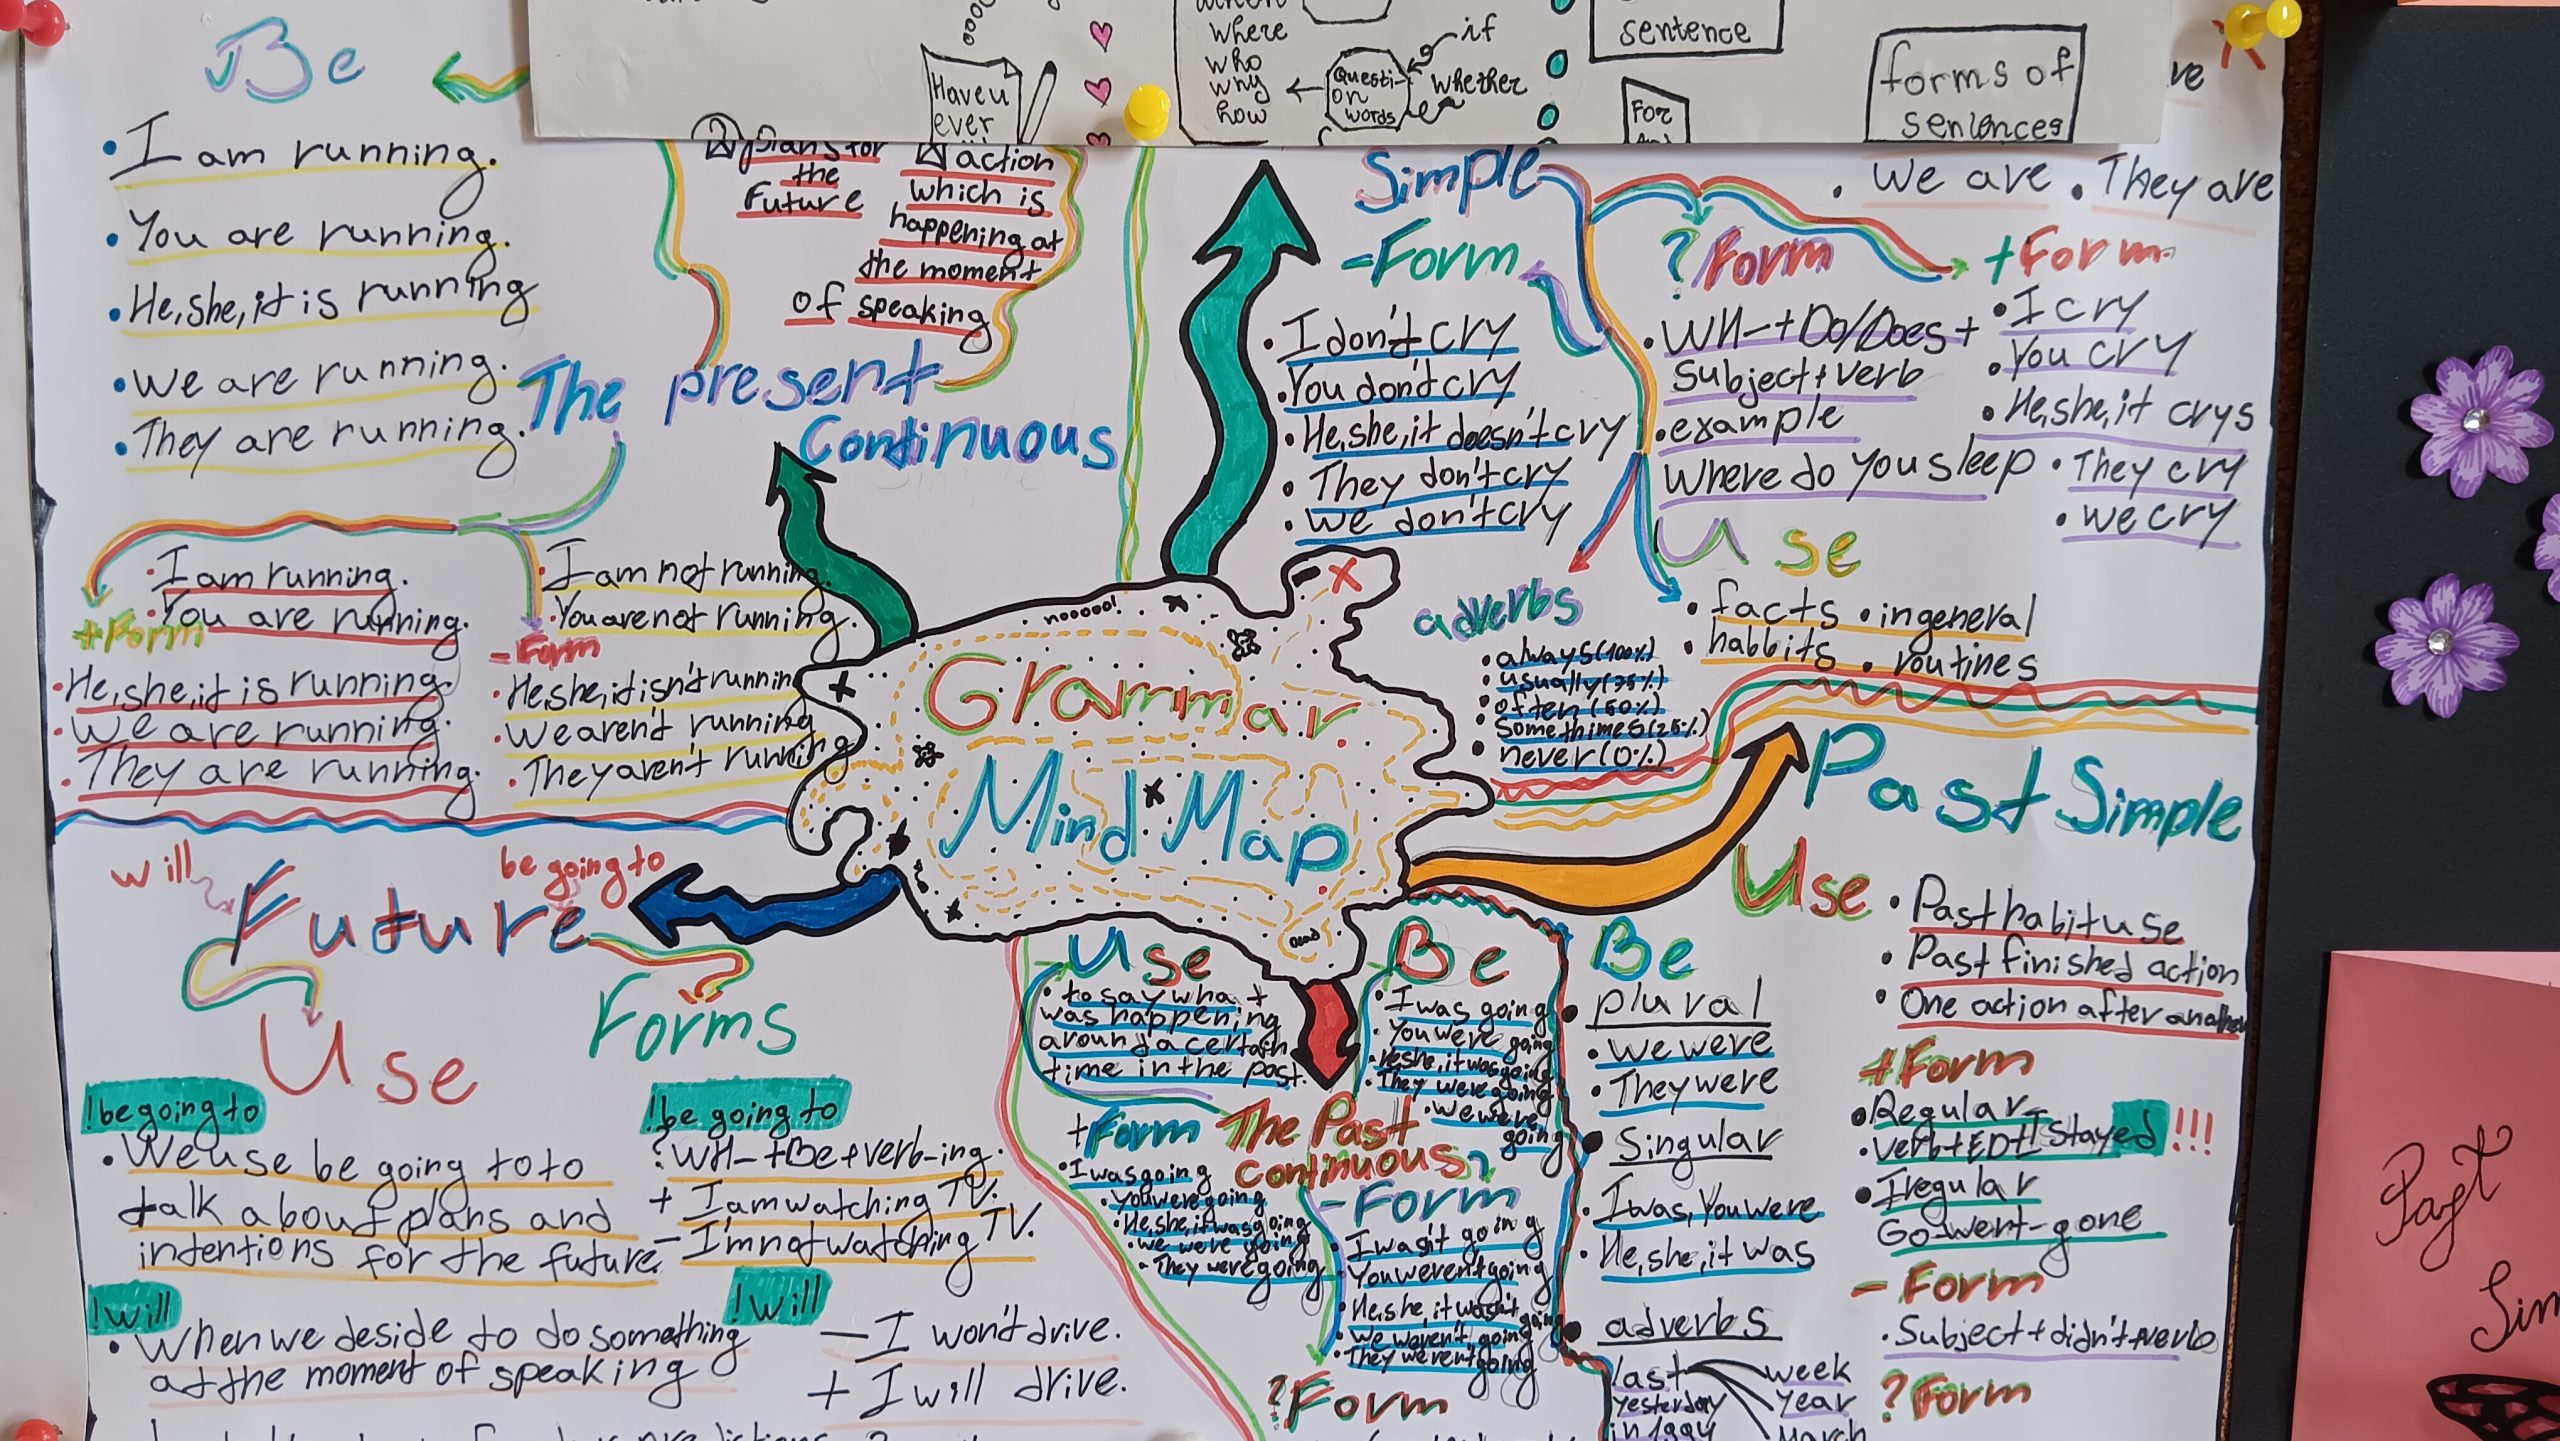 where
who
why
how
Questi-
on
words
if
whether
sentence
For
forms of
sentences
Have u
ever
Be
• I am running.
• You are running.
• He, she, it is running
• We are running.
• They are running.
plans for
the
Future
action
which is
happening at
the moment
of speaking
The present
Continuous
+Form
• I am running.
• You are running.
• He, she, it is running.
• We are running.
• They are running.
-Form
• I am not running.
• You are not running.
• He, she, it isn't running
• We aren't running
• They aren't running
Simple
• We are • They are
-Form
• I don't cry
• You don't cry
• He, she, it doesn't cry
• They don't cry
• We don't cry
? Form
• WH-+Do/Does+
subject+verb
• example
Where do you sleep
+Form
• I cry
• You cry
• He, she, it crys
• They cry
• We cry
Use
• facts • in general
• habbits • routines
adverbs
• always (100%)
• usually (75%)
• often (50%)
• Somethimes (25%)
• never (0%)
nooooo!
Grammar
Mind Map
Past Simple
Use
• Past habit use
• Past finished action
• One action after another
+Form
• Regular-
• Verb+ED+I stayed!!!
• Iregular
Go-went-gone
- Form
• Subject+didn't+verb
? Form
Be
• plural
• We were
• They were
• Singular
• I was, You were
• He, she, it was
• adverbs
last week
year
March
yesterday
in 1994
will
be going to
Future
Use
! be going to
• We use be going to to
talk about plans and
intentions for the future.
! will
• When we deside to do something
at the moment of speaking
Forms
! be going to
? WH-+Be+verb-ing.
+ I am watching TV.
- I'm not watching TV.
! will
- I won't drive.
+ I will drive.
Use
• to say what
was happening
around a certain
time in the past.
Be
• I was going
• You were going
• He, she, it was going
• They were going
• We were
going
The Past
continuous
+Form
• I was going
• You were going
• He, she, it was going
• We were going
• They were going
- Form
• I wasn't going
• You weren't going
• He, she, it wasn't going
• We weren't going
• They weren't going
? Form
Past
Sim